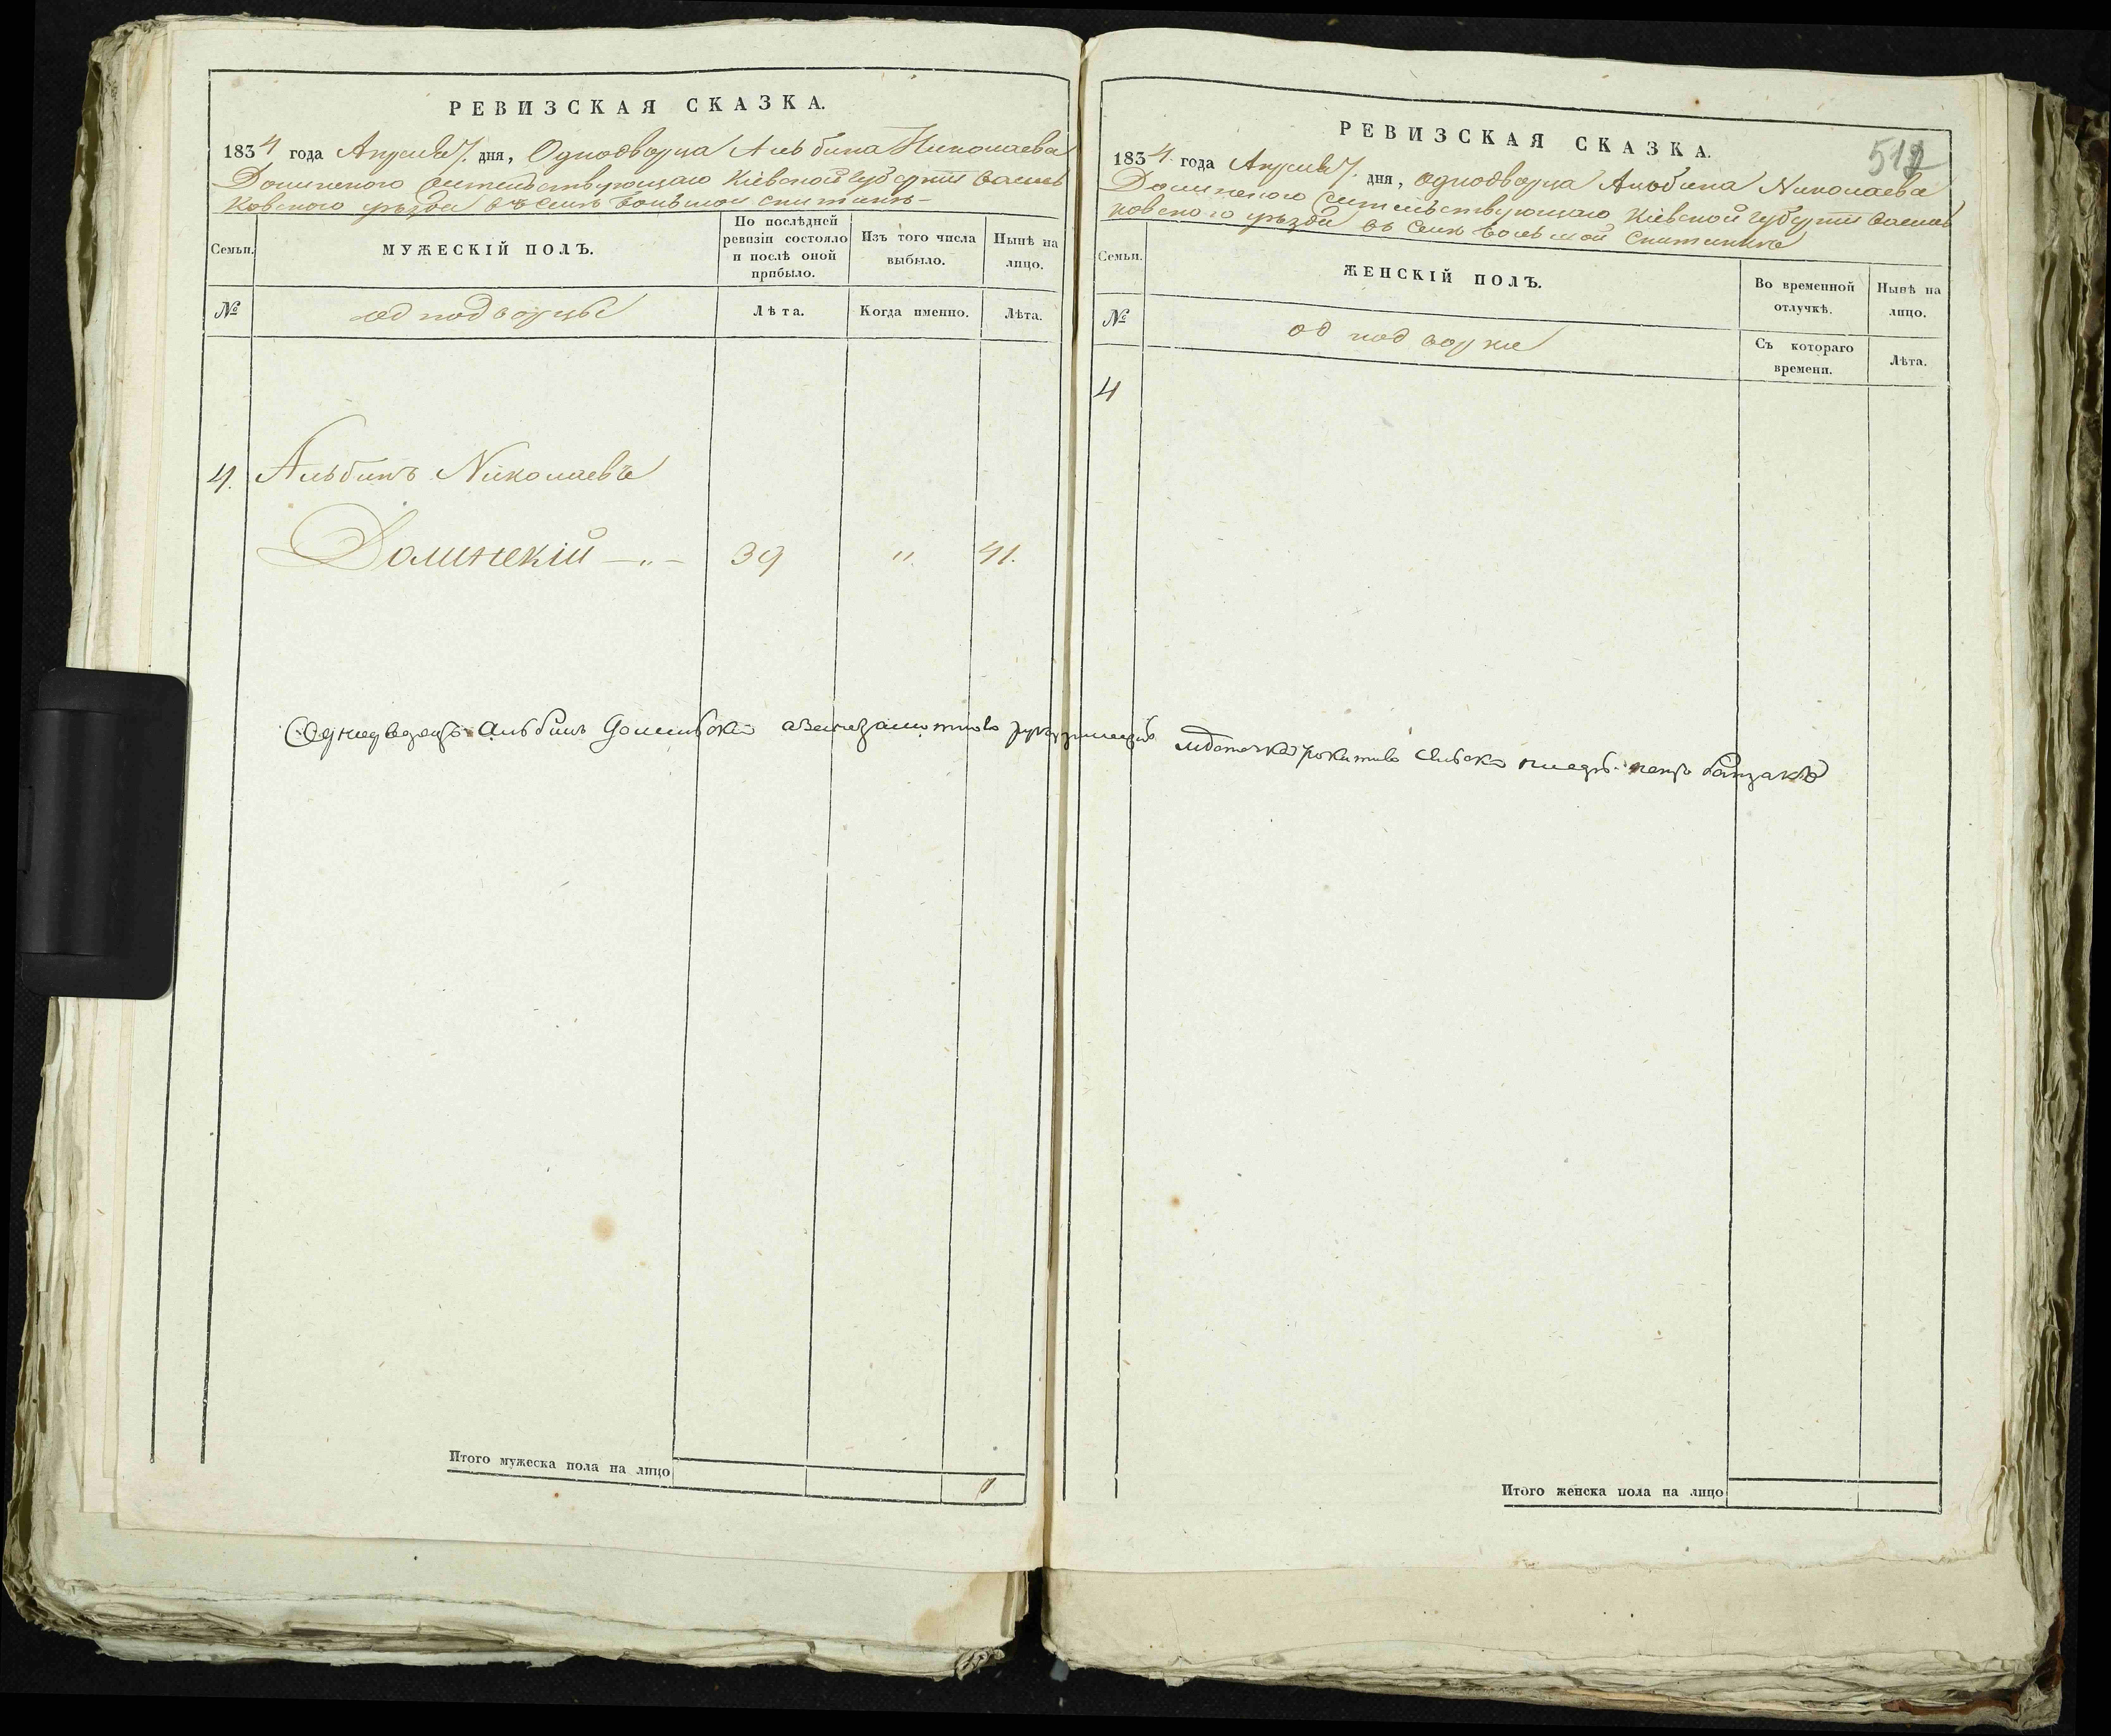 РЕВИЗСКАЯ СКАЗКА.
1834 года Апреля 7. дня, Однодворца Альбина Николаева
Долинского Жительствующаго Кіевской Губерніи Василь
ковского уѣзда въ селѣ большой снитинкѣ
Семьи.
МУЖЕСКІЙ ПОЛЪ.
По послѣдней ревизіи состояло и послѣ оной прибыло.
Изъ того числа выбыло.
Нынѣ на лицо.
№
однодворцы
Лѣта.
Когда именно.
Лѣта.
4. Альбинъ Николаевъ
Долинскій — " — 39 " 41.
Однодворецъ Альбинъ Долиньскій
Итого мужеска пола на лицо 1
РЕВИЗСКАЯ СКАЗКА.
512
1834 года Апреля 7. дня, однодворца Альбина Николаева
Долинского Жительствующаго Кіевской Губерніи Василь
ковского уѣзда въ селѣ большой Снитинкѣ
Семьи.
ЖЕНСКІЙ ПОЛЪ.
Во временной отлучкѣ.
Нынѣ на лицо.
№
однодворки
Съ котораго времени.
Лѣта.
4
Итого женска пола на лицо